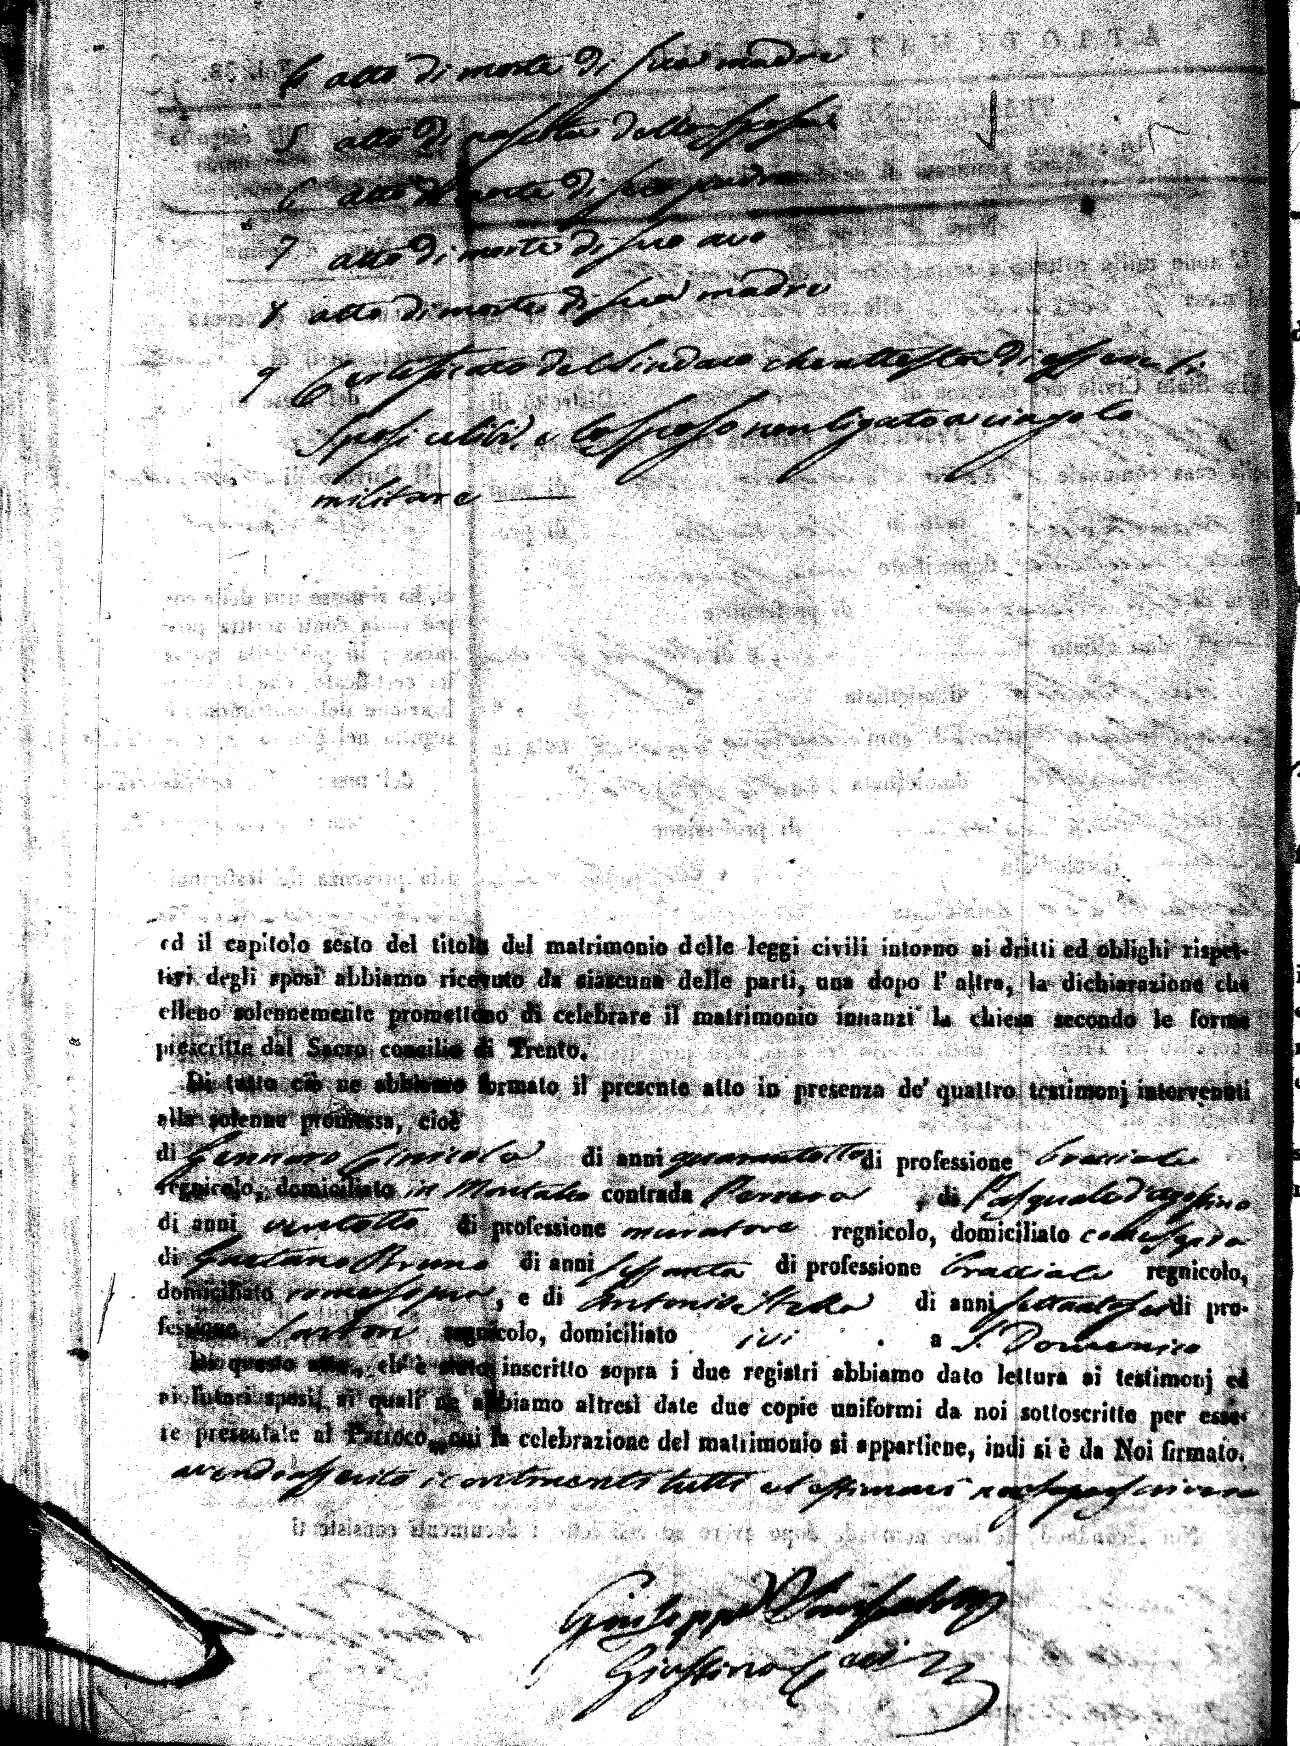 atto di morte di sua madre
5 atto di nascita della sposa
6 atto di morte di suo padre
7 atto di morte di suo avo
8 atto di morte di sua madre
9 Certificato del Sindaco che attesta di essere li
sposi celibi, e lo sposo non ligato a cingolo
militare
ed il capitolo sesto del titolo del matrimonio delle leggi civili intorno ai dritti ed oblighi rispet-
tivi degli sposi abbiamo ricevuto da ciascuna delle parti, una dopo l' altra, la dichiarazione che
elleno solennemente promettono di celebrare il matrimonio innanzi la chiesa secondo le forme
prescritte dal Sacro concilio di Trento.
Di tutto ciò ne abbiamo formato il presente atto in presenza de' quattro testimonj intervenuti
alla solenne promessa, cioè
di Gennaro di anni quarantotto di professione bracciale
regnicolo, domiciliato in Montalto contrada , di Pasquale d'agostino
di anni ventotto di professione muratore regnicolo, domiciliato come sopra
di Gaetano Bruno di anni sessanta di professione bracciale regnicolo,
domiciliato come sopra, e di Antonio di anni di pro-
fessione sartore regnicolo, domiciliato ivi a S. Domenico
Di questo atto, ch' è stato inscritto sopra i due registri abbiamo dato lettura ai testimonj ed
ai futuri sposi, ai quali ne abbiamo altresì date due copie uniformi da noi sottoscritte per esse-
re presentate al Parroco, cui la celebrazione del matrimonio si appartiene, indi si è da Noi firmato,
avendo asserito i contraenti tutti ed testimoni non saper scrivere
Giuseppe
Giustino